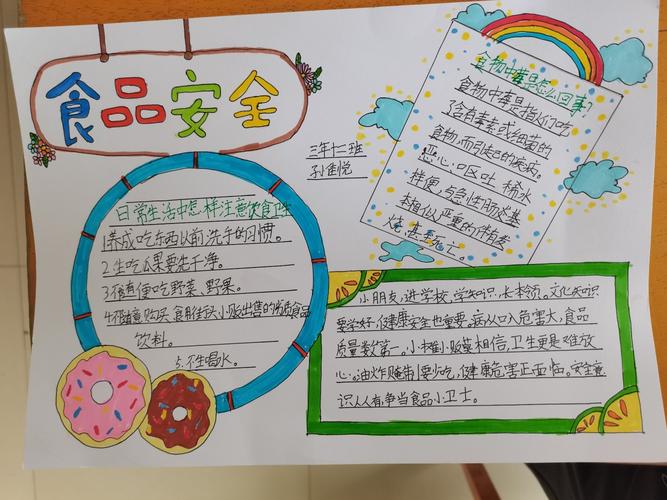 食品安全
三年十二班
孙佳悦
食物中毒是怎么回事?
食物中毒是指人们吃
了含有毒素或细菌的
食物,而引起的疾病。
恶心口区吐、稀水
样便,与急性肠炎基
本相似,严重的伴有发
烧,甚至死亡。
日常生活中怎样注意饮食卫生
1.养成吃东西以前洗手的习惯。
2.生吃瓜果要洗干净。
3.不随便吃野菜、野果。
4.不随意购买、食用街头小贩出售的劣质食品
饮料。
5.不生喝水。
小朋友,进学校,学知识,长本领。文化知识
要学好,健康安全也重要。病从口入危害大,食品
质量数第一。小摊小贩莫相信,卫生更是难放
心。油炸腌制要少吃,健康危害正面临。安全意
识人人有,争当食品小卫士。